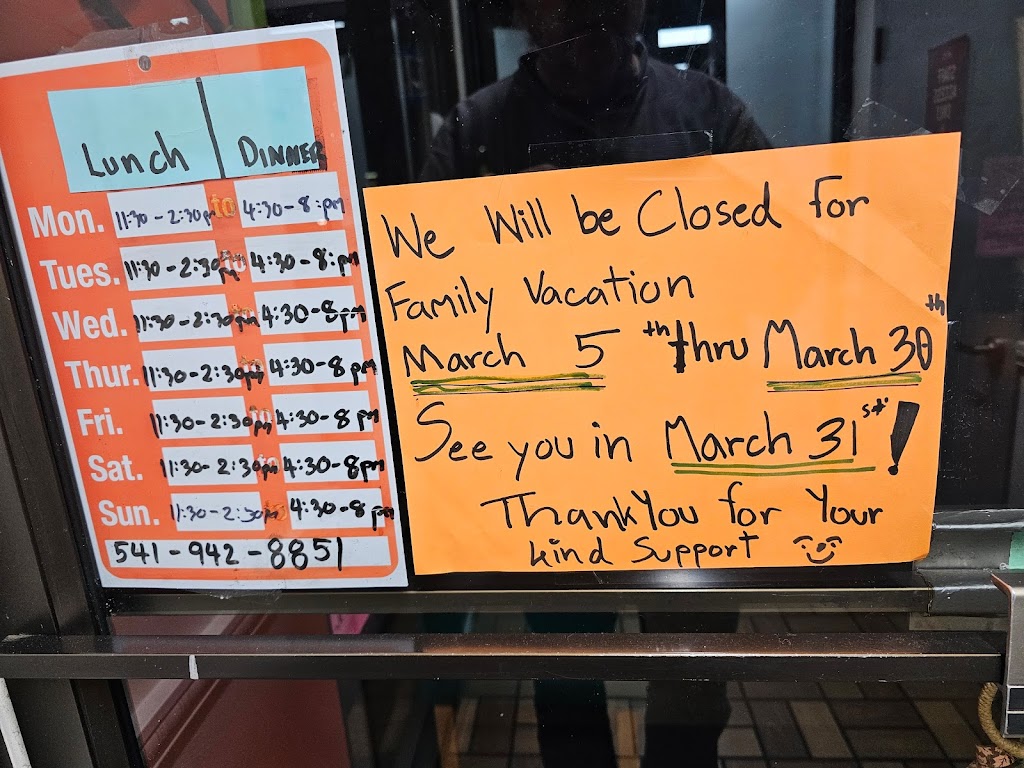 Lunch | Dinner
Mon. 11:30 - 2:30pm to 4:30-8:pm
Tues. 11:30-2:30pm to 4:30-8:pm
Wed. 11:30-2:30pm 4:30-8pm
Thur. 11:30-2:30pm to 4:30-8pm
Fri. 11:30-2:30pm to 4:30-8pm
Sat. 11:30-2:30pm to 4:30-8pm
Sun. 11:30-2:30pm to 4:30-8pm
541-942-8851
We Will be Closed for
Family Vacation
March 5th thru March 30th
See you in March 31st!
Thank You for Your
kind Support